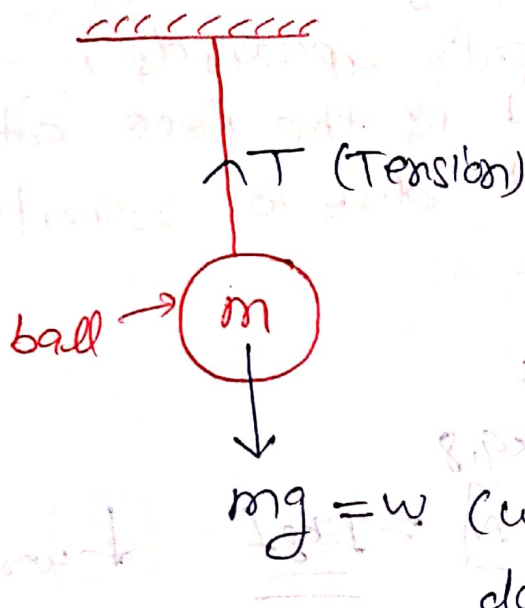 T (Tension)
ball
m
mg = w (
do